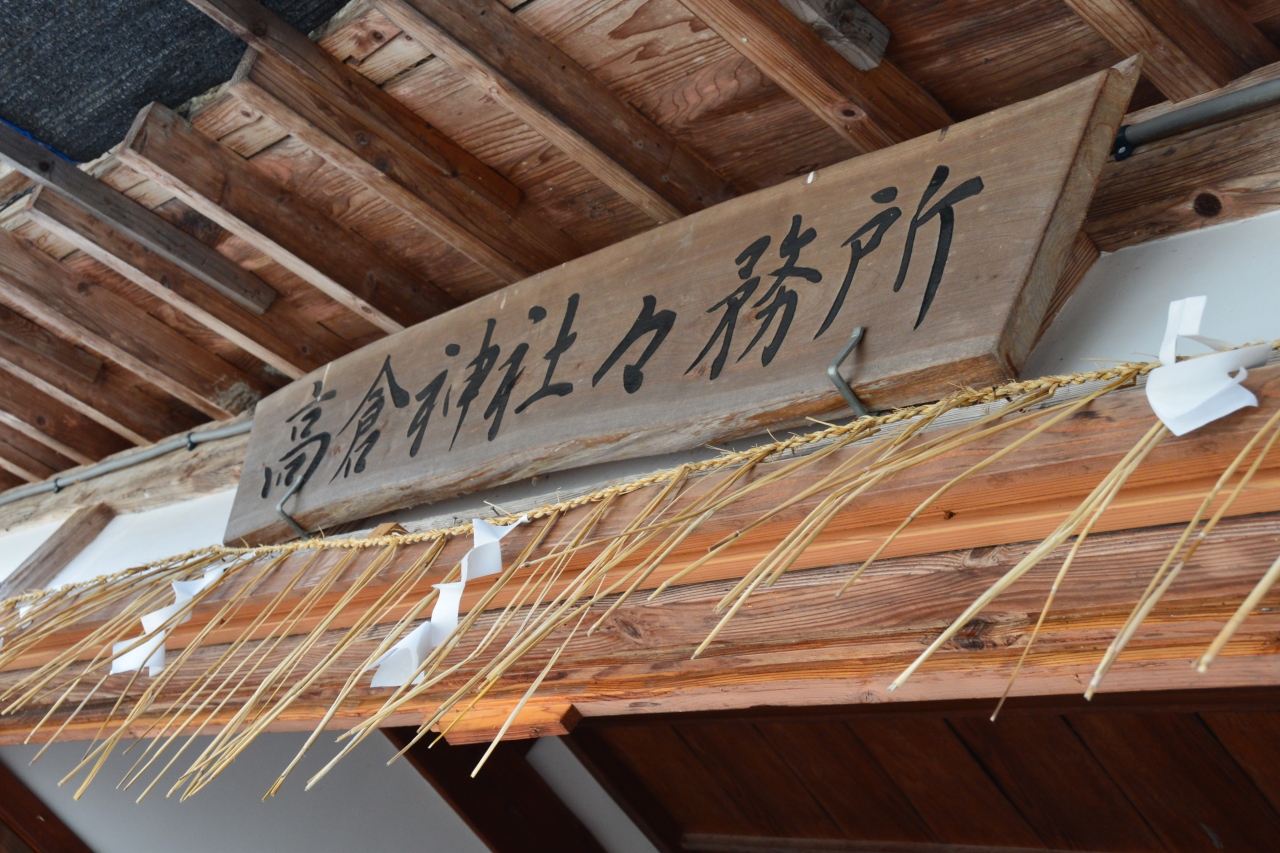 高倉神社々務所